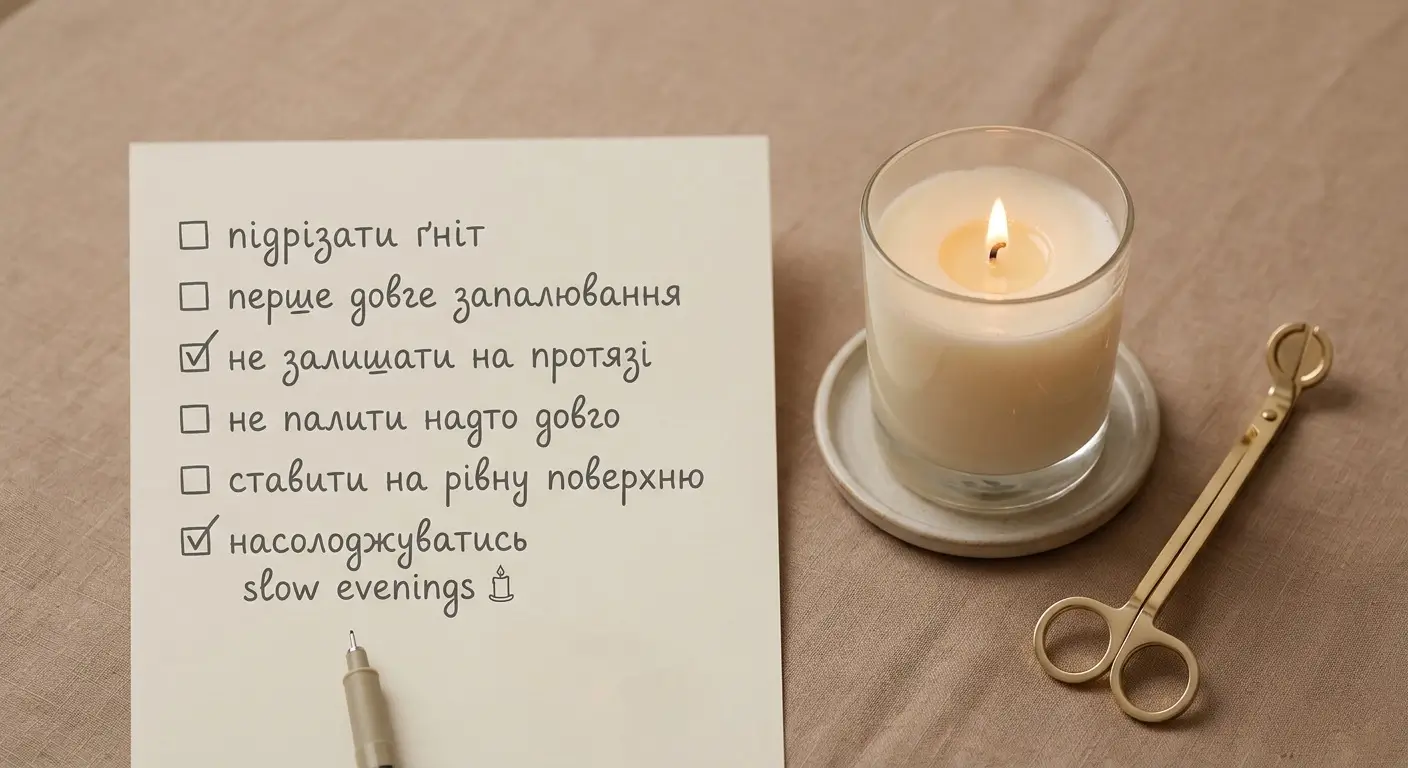 підрізати ґніт
перше довге запалювання
не залишати на протязі
не палити надто довго
ставити на рівну поверхню
насолоджуватись
slow evenings